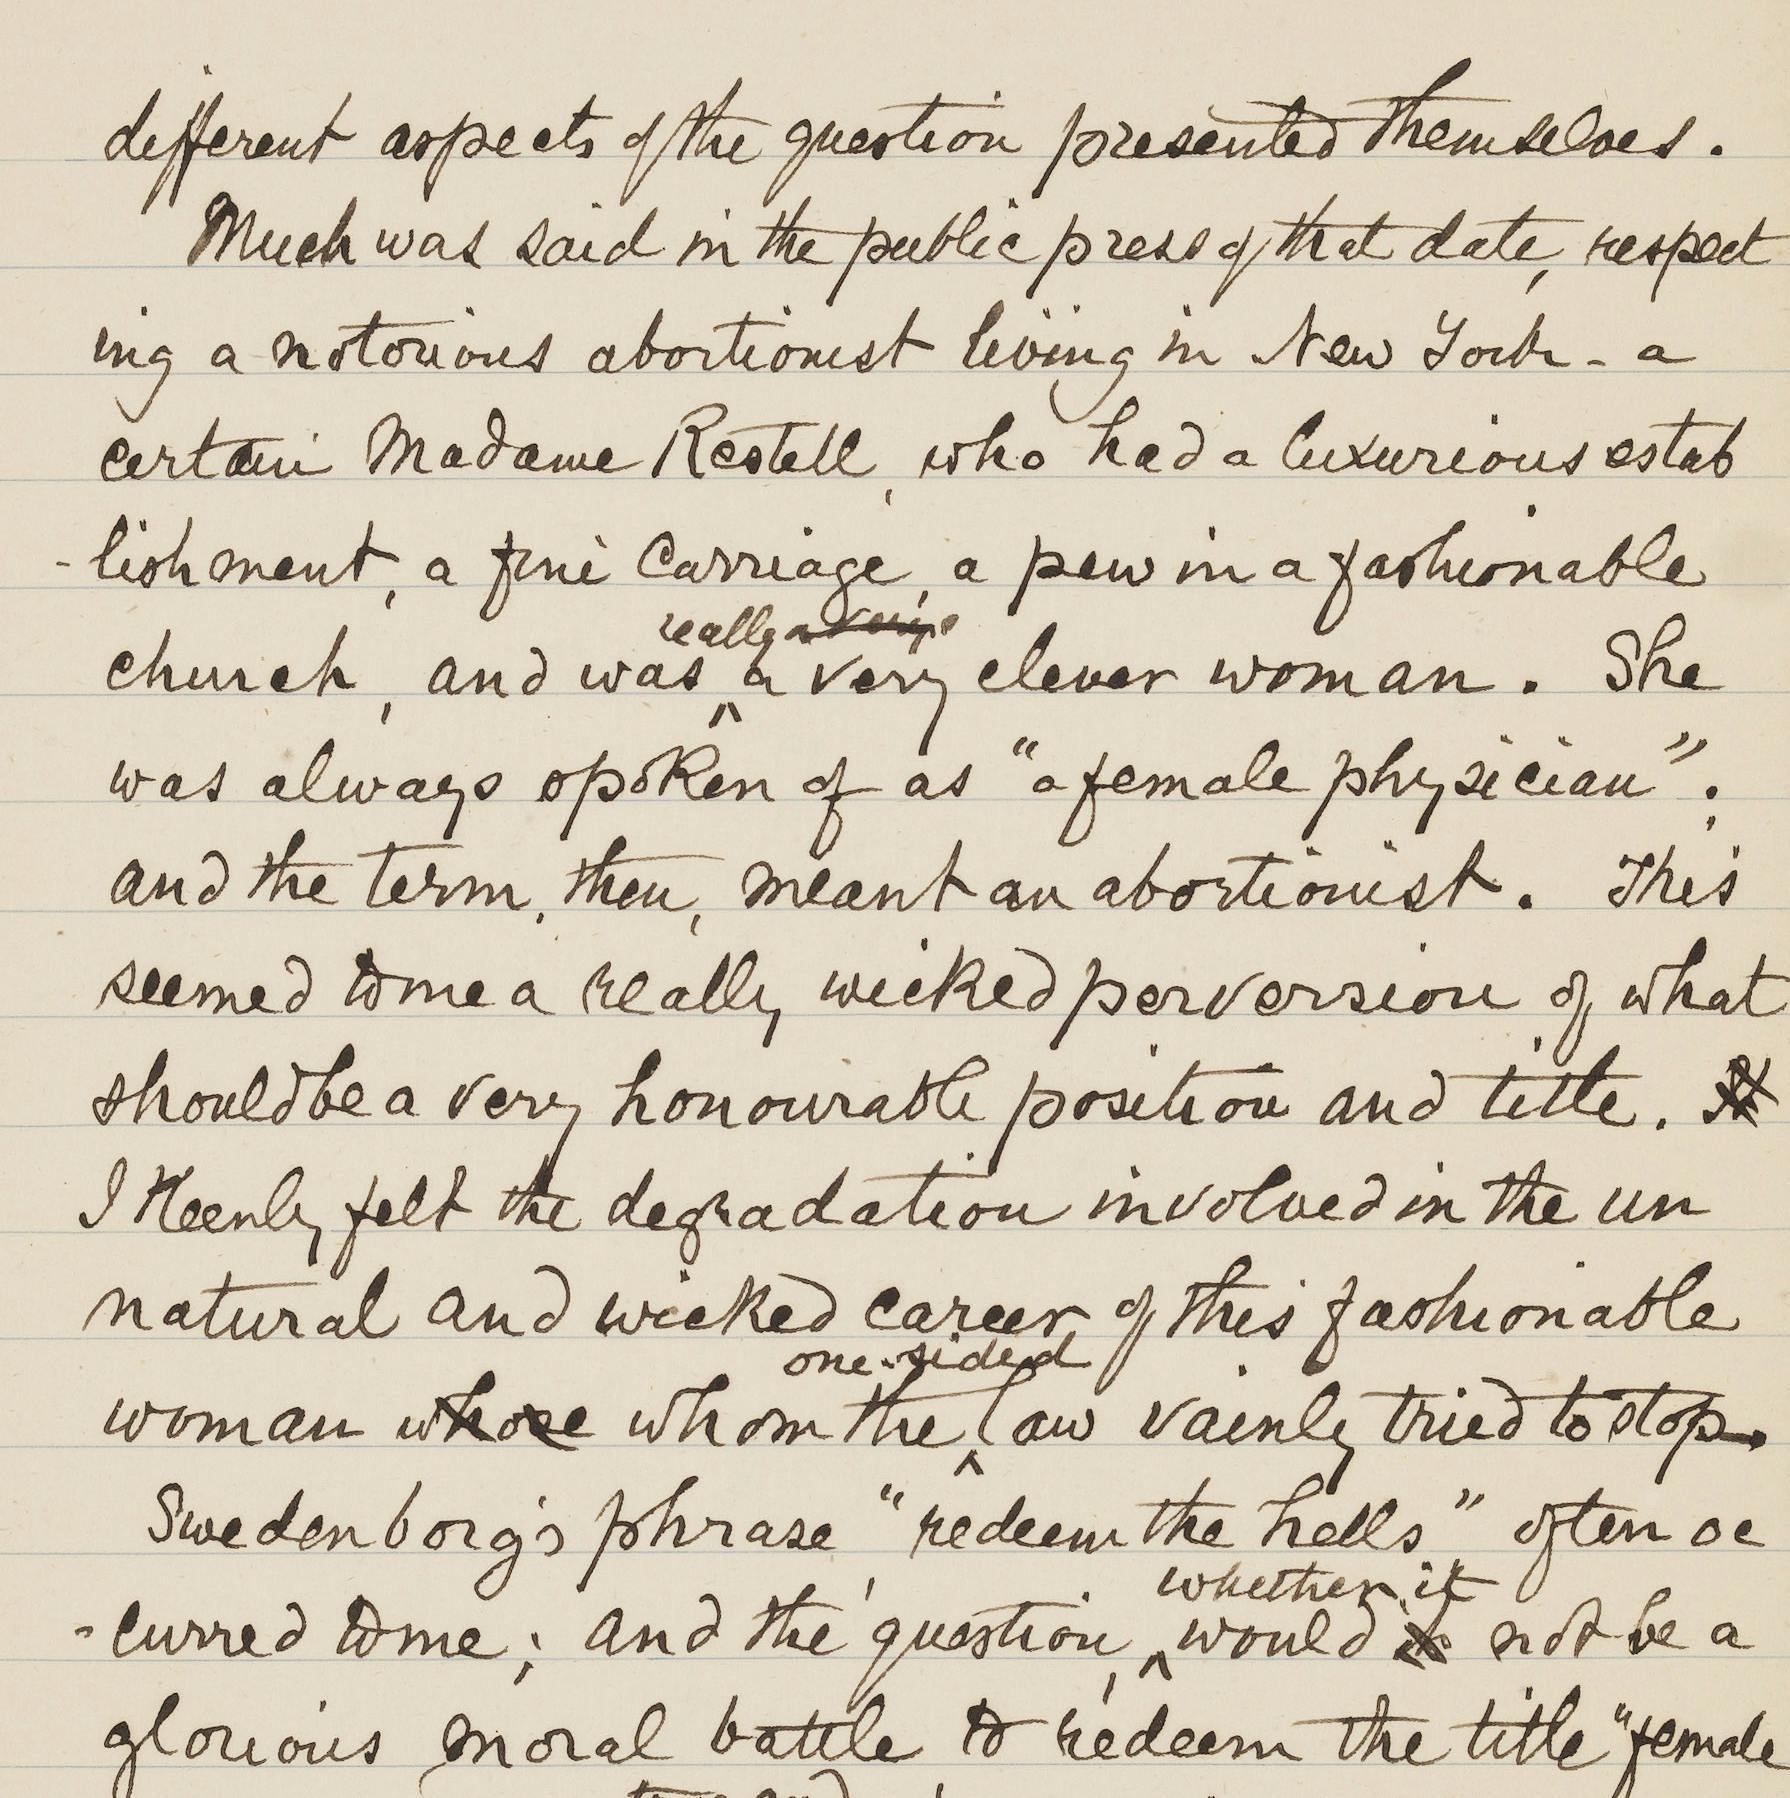 different aspects of the question presented themselves.
Much was said in the public press of that date, respect
ing a notorious abortionist living in New York - a
certain Madame Restell, who had a luxurious estab
-lishment, a fine Carriage, a pew in a fashionable
really a very
church, and was ^ a very clever woman. She
was always spoken of as "a female physician";
and the term, then, meant an abortionist. This
seemed to me a really wicked perversion of what
should be a very honourable position and title. It
I Keenly felt the degradation involved in the un
natural and wicked career of this fashionable
one-sided
woman whose whom the ^ law vainly tried to stop.
Swedenborg's phrase, "redeem the hells" often oc
whether it
-curred to me; and the question, ^ would it not be a
glorious moral battle to redeem the title "female